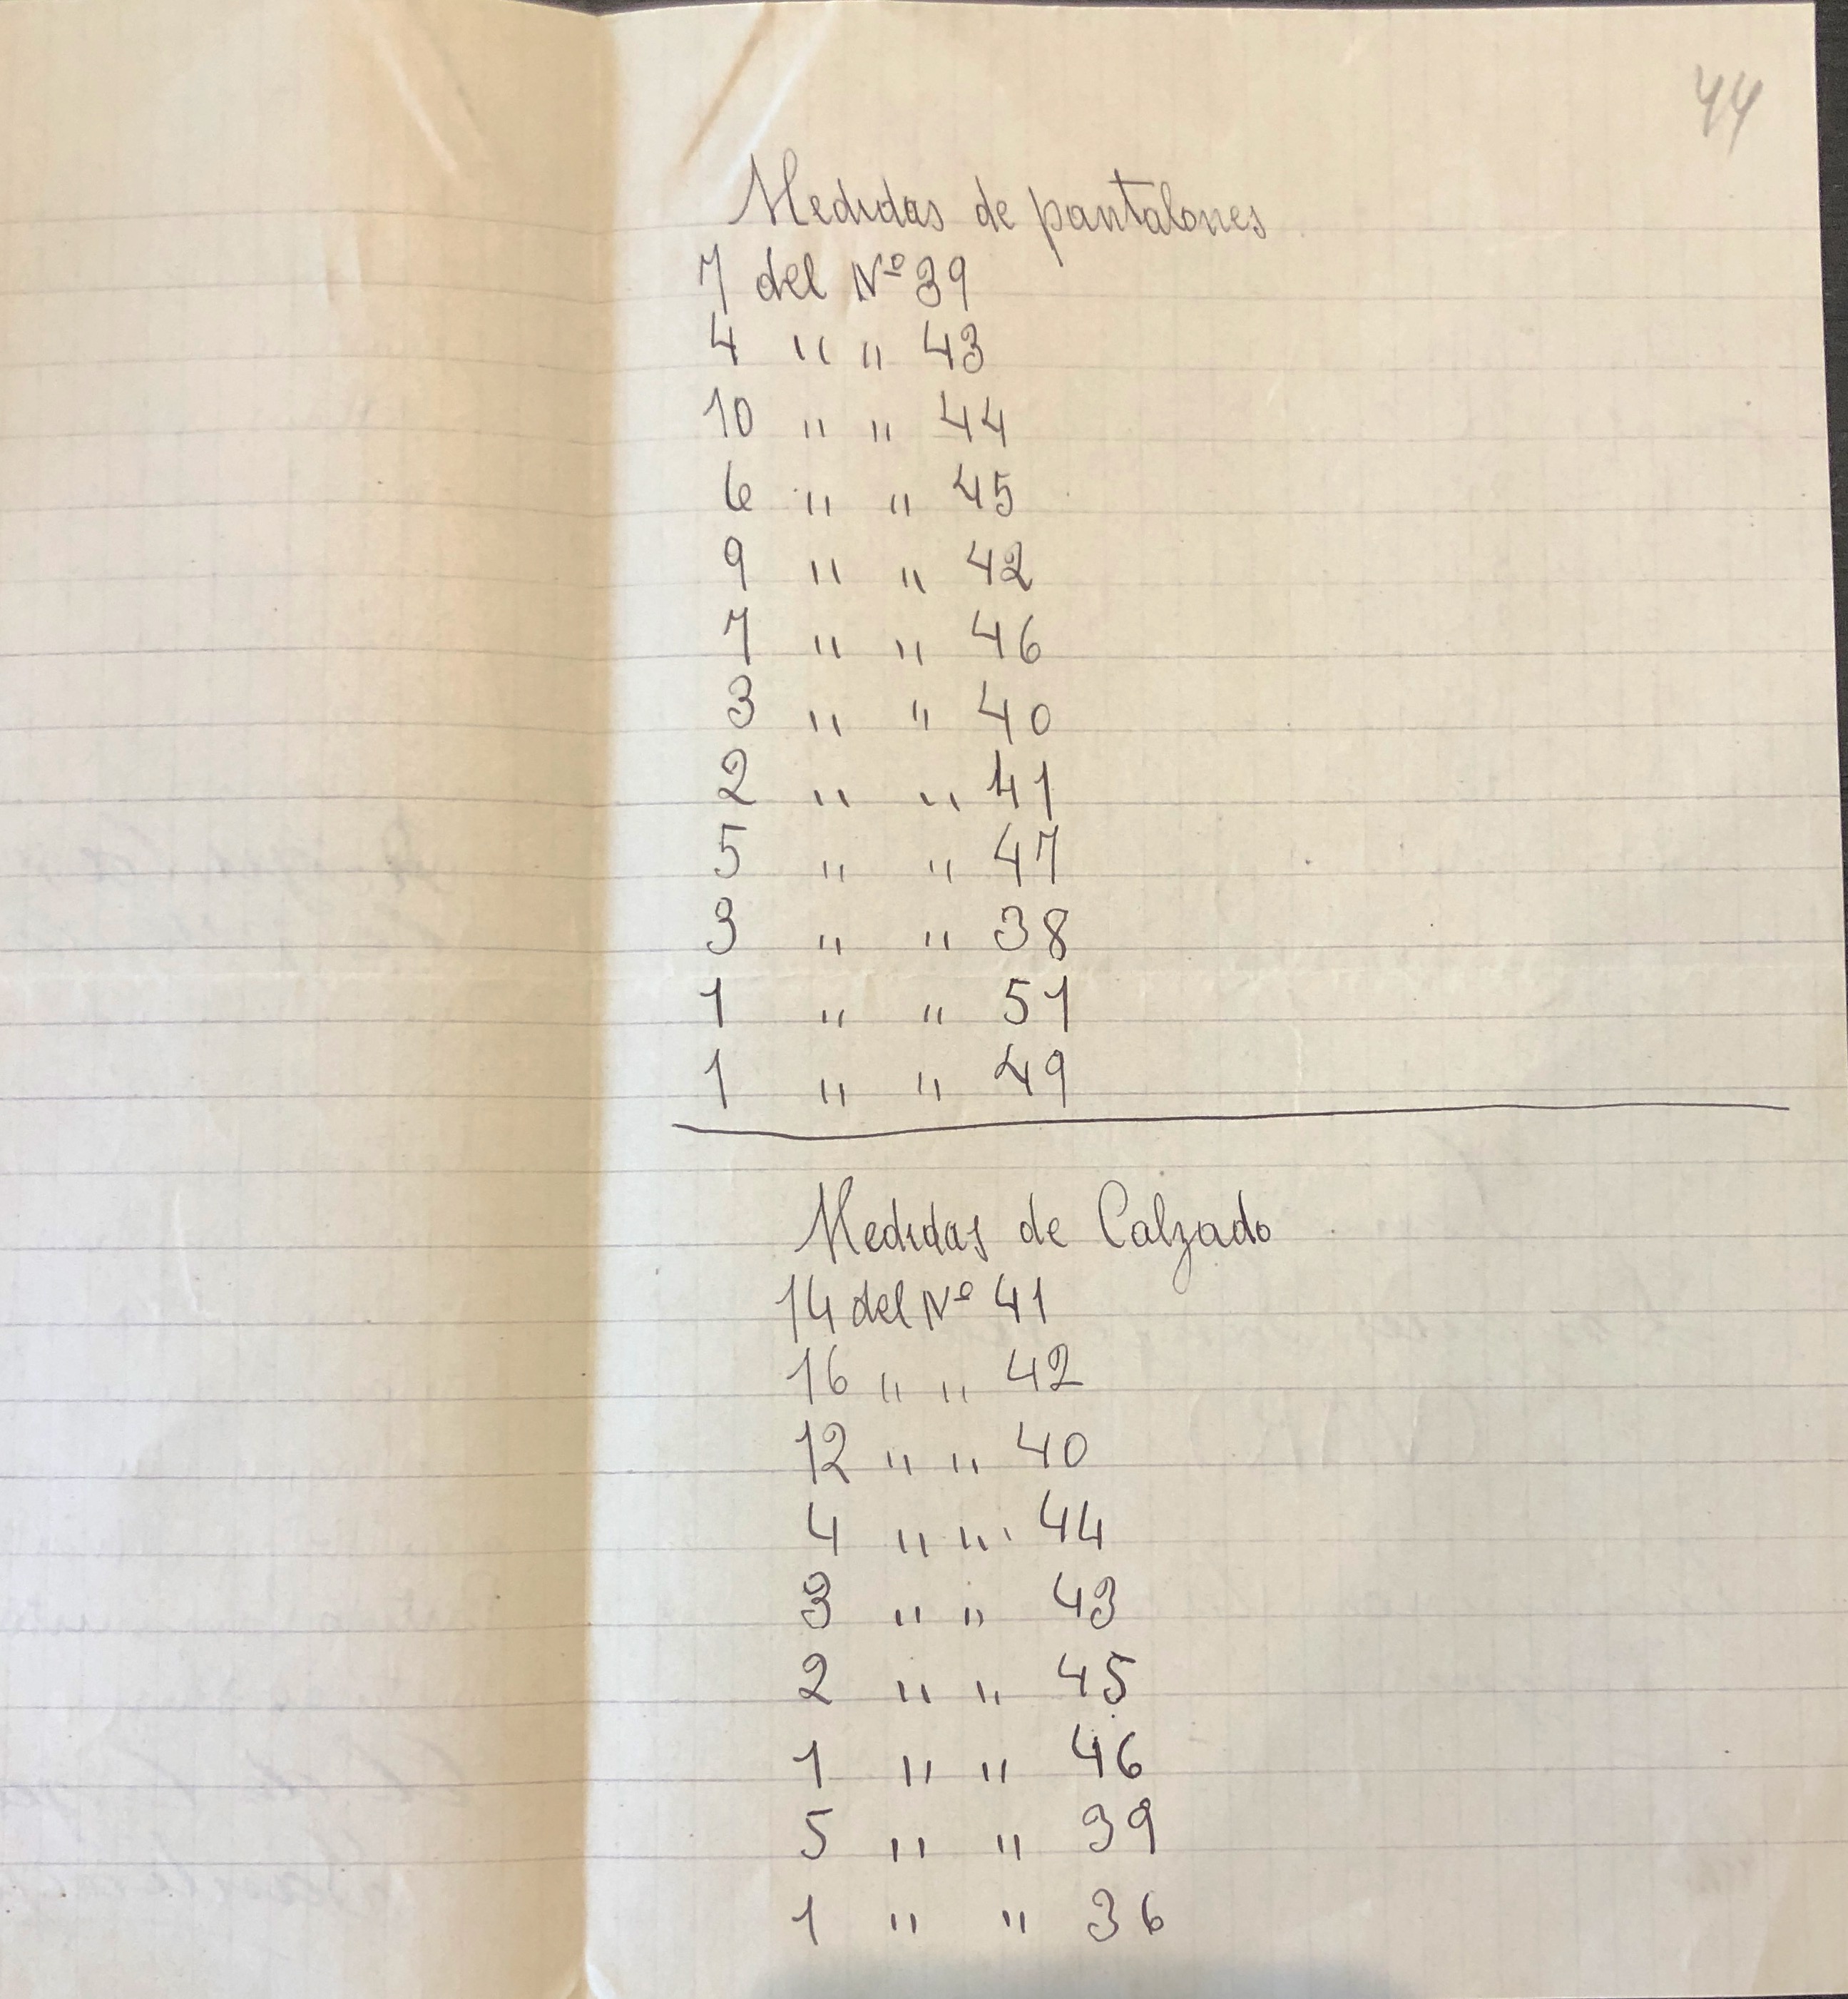 44
Medidas de pantalones
7 del Nº 39
4 " " 43
10 " " 44
6 " " 45
9 " " 42
7 " " 46
3 " " 40
2 " " 41
5 " " 47
3 " " 38
1 " " 51
1 " " 49
Medidas de Calzado
14 del Nº 41
16 " " 42
12 " " 40
4 " " 44
3 " " 43
2 " " 45
1 " " 46
5 " " 39
1 " " 36